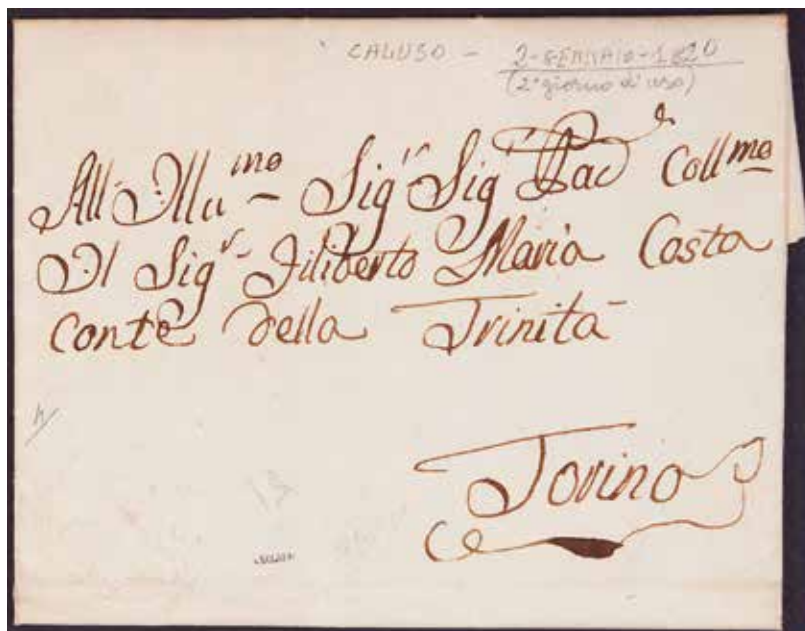 CALUSO - 2-GENNAIO-1820
(2° giorno di uso)
All'Illu.mo Sig.r Sig.r Pad.e Coll.mo
Il Sig.r Filiberto Maria Costa
Conte della Trinità
Torino